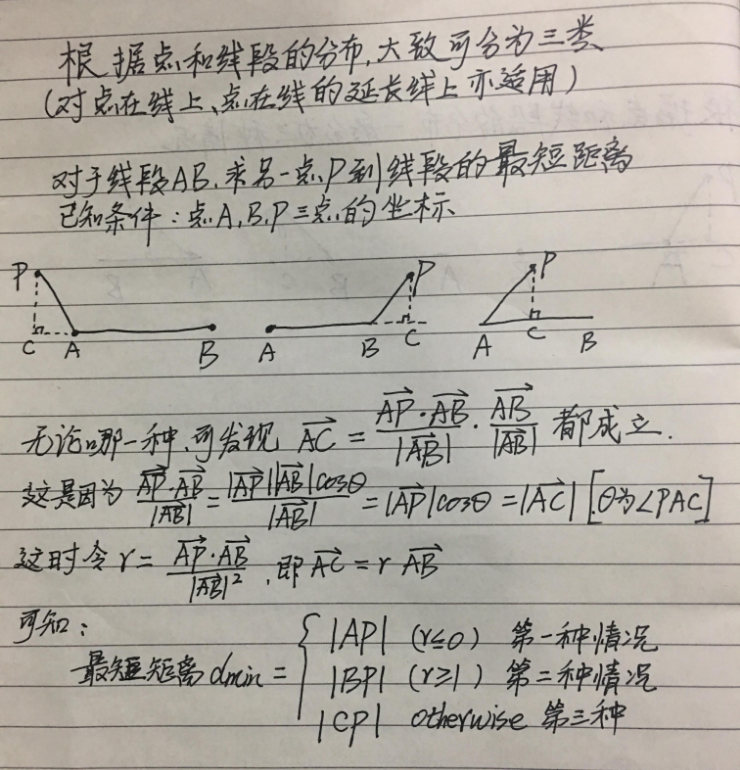 根据点和线段的分布,大致可分为三类
(对点在线上、点在线的延长线上亦适用)
对于线段AB,求另一点P到线段的最短距离
已知条件:点A,B,P三点的坐标
P C A B
A B C P
A C B P
无论哪一种,可发现 $\overrightarrow{AC} = \frac{\overrightarrow{AP}\cdot\overrightarrow{AB}}{|\overrightarrow{AB}|}\cdot\frac{\overrightarrow{AB}}{|\overrightarrow{AB}|}$ 都成立.
这是因为 $\frac{\overrightarrow{AP}\cdot\overrightarrow{AB}}{|\overrightarrow{AB}|} = \frac{|\overrightarrow{AP}||\overrightarrow{AB}|\cos\theta}{|\overrightarrow{AB}|} = |\overrightarrow{AP}|\cos\theta = |\overrightarrow{AC}|$ [θ为∠PAC]
这时令 $r = \frac{\overrightarrow{AP}\cdot\overrightarrow{AB}}{|\overrightarrow{AB}|^2}$,即 $\overrightarrow{AC} = r\,\overrightarrow{AB}$
可知:
最短距离 dmin = {
|AP| (r≤0) 第一种情况
|BP| (r≥1) 第二种情况
|CP| otherwise 第三种